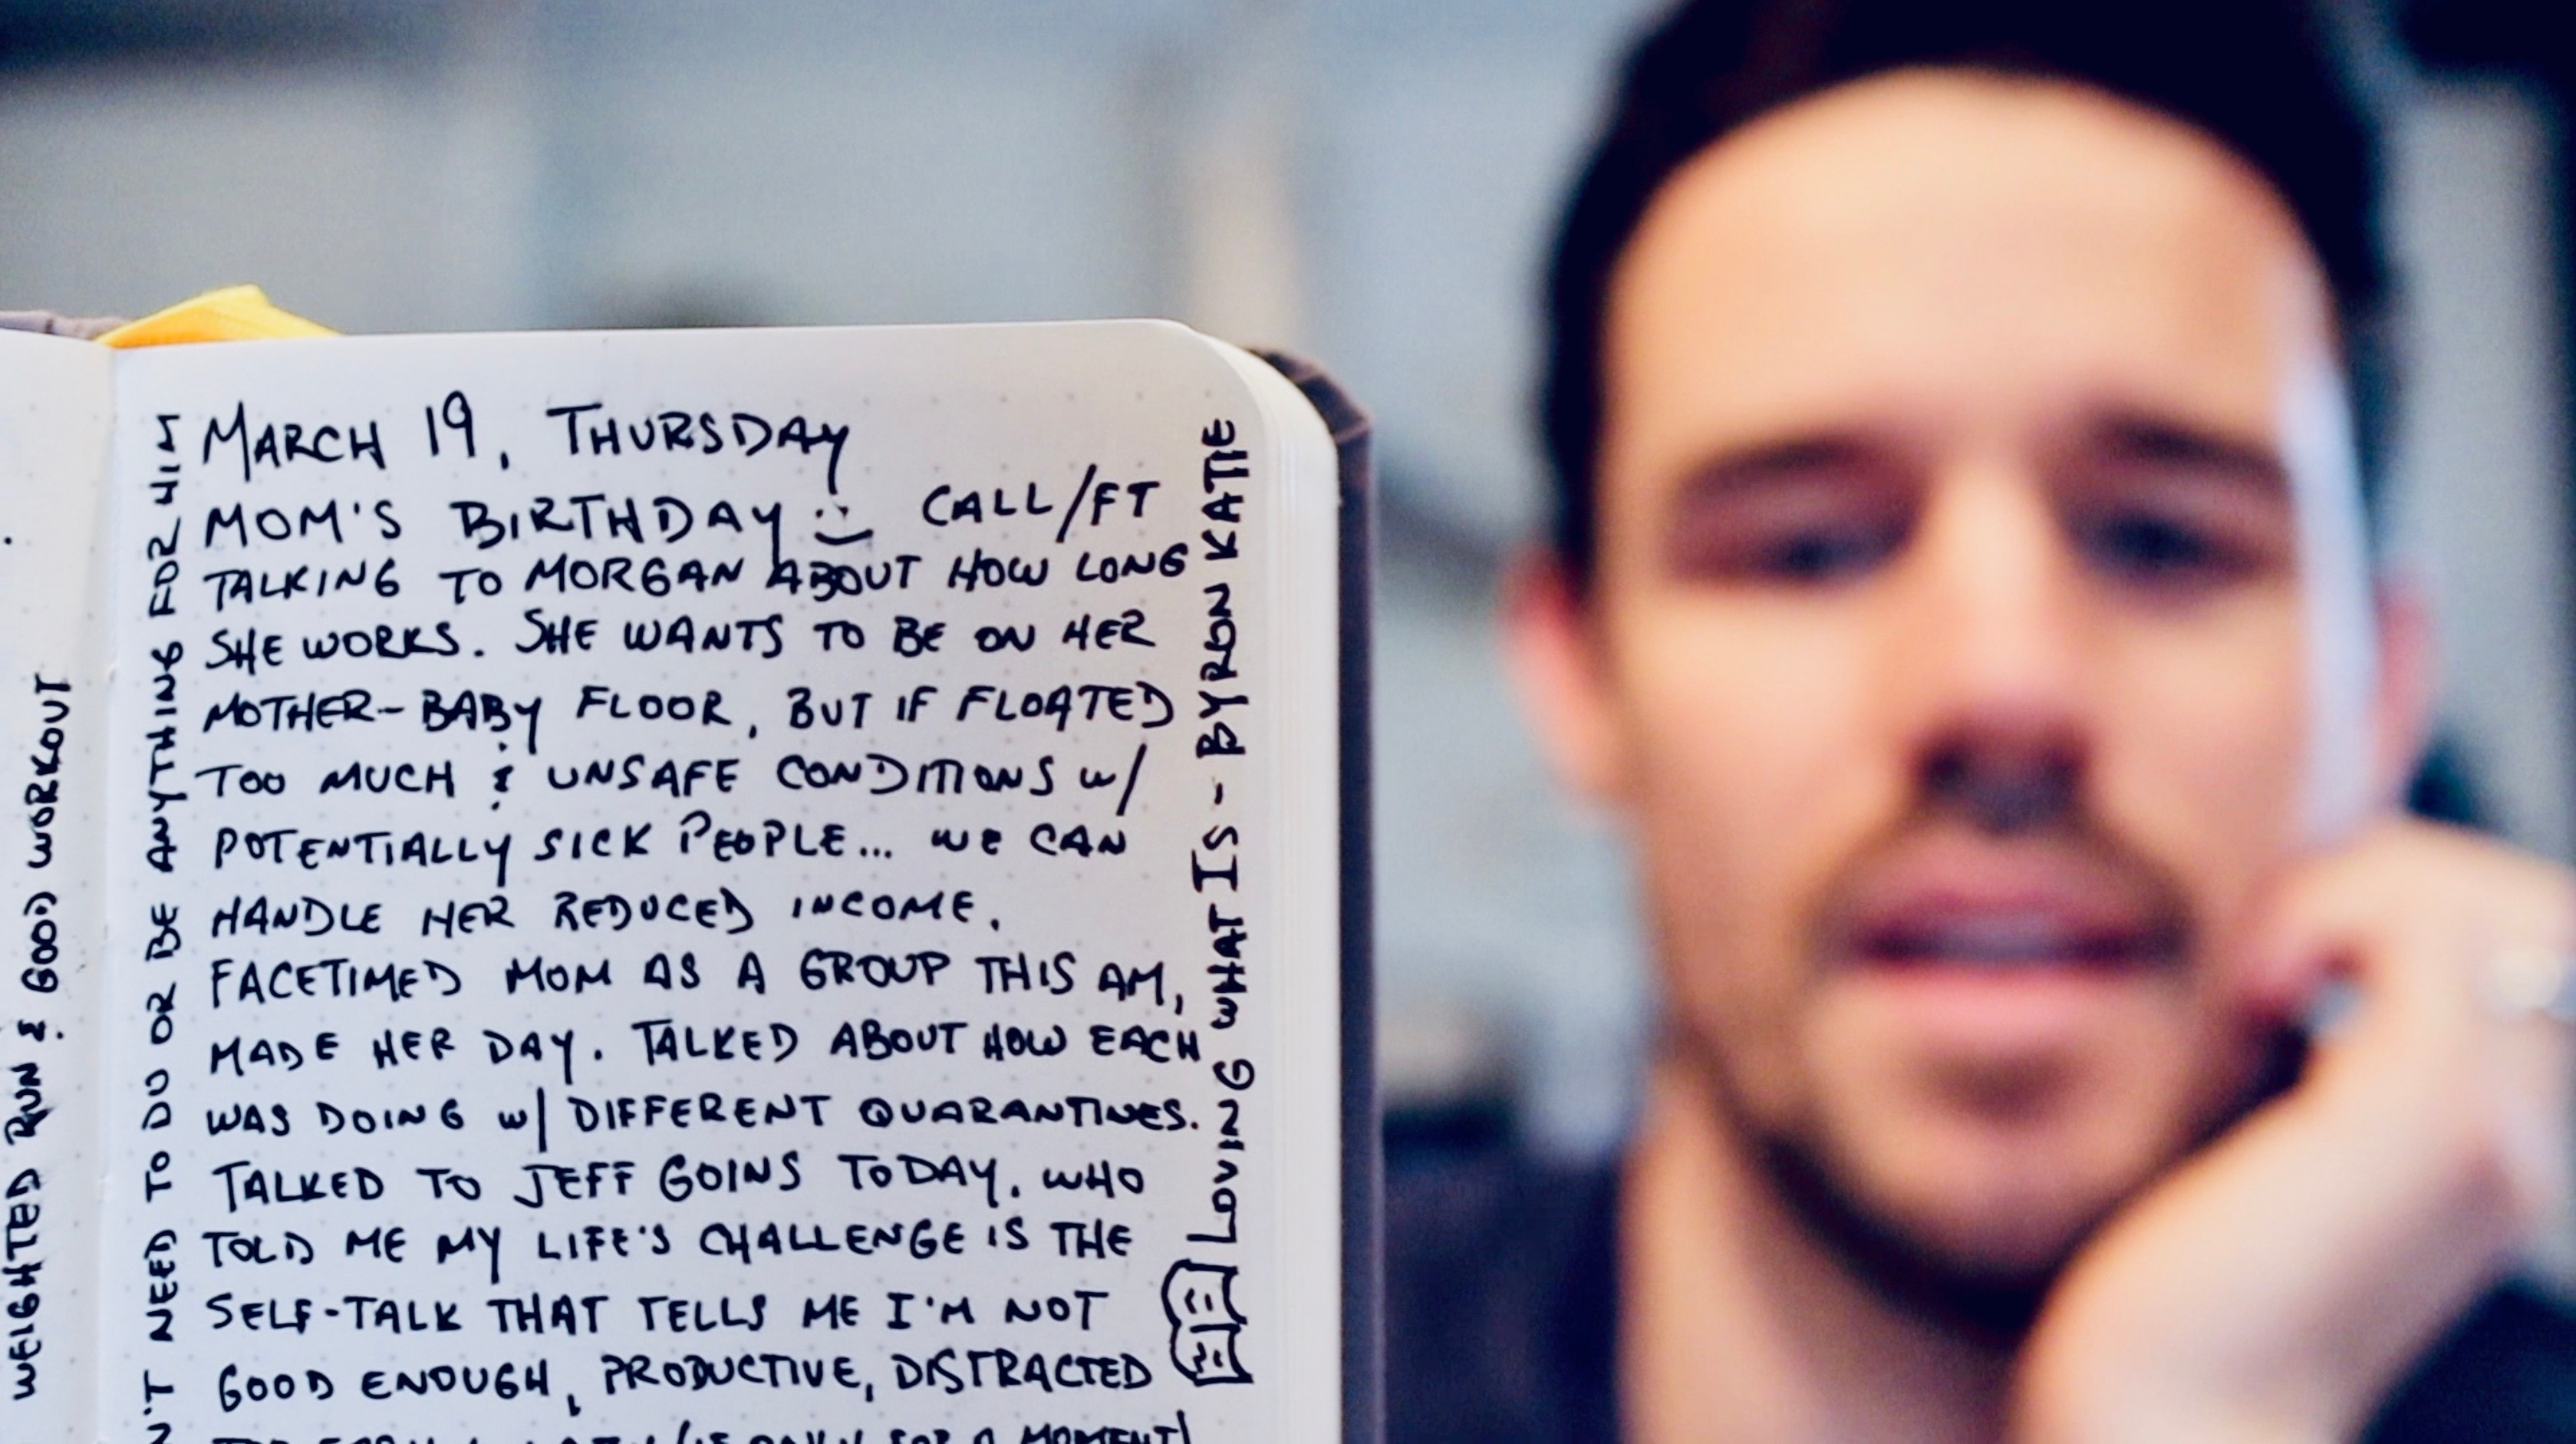 WEIGHTED RUN & GOOD WORKOUT
NEED TO DO OR BE ANYTHING FOR HIM
MARCH 19, THURSDAY
MOM'S BIRTHDAY :) CALL/FT
TALKING TO MORGAN ABOUT HOW LONG
SHE WORKS. SHE WANTS TO BE ON HER
MOTHER-BABY FLOOR, BUT IF FLOATED
TOO MUCH & UNSAFE CONDITIONS W/
POTENTIALLY SICK PEOPLE... WE CAN
HANDLE HER REDUCED INCOME.
FACETIMED MOM AS A GROUP THIS AM,
MADE HER DAY. TALKED ABOUT HOW EACH
WAS DOING W/ DIFFERENT QUARANTINES.
TALKED TO JEFF GOINS TODAY. WHO
TOLD ME MY LIFE'S CHALLENGE IS THE
SELF-TALK THAT TELLS ME I'M NOT
GOOD ENOUGH, PRODUCTIVE, DISTRACTED
FOR A MOMENT)
LOVING WHAT IS - BYRON KATIE